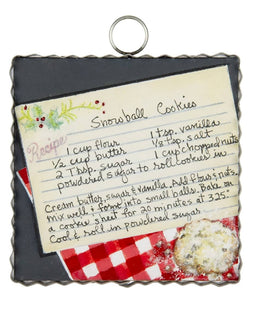 Snowball Cookies
Recipe
1 cup flour 1 tsp. vanilla
½ cup butter ⅛ tsp. salt
2 Tbsp. sugar 1 cup chopped nuts
powdered sugar to roll cookies in
Cream butter, sugar & vanilla. Add flour & nuts,
mix well & form into small balls. Bake on
a cookie sheet for 20 minutes at 325°
Cool & roll in powdered sugar